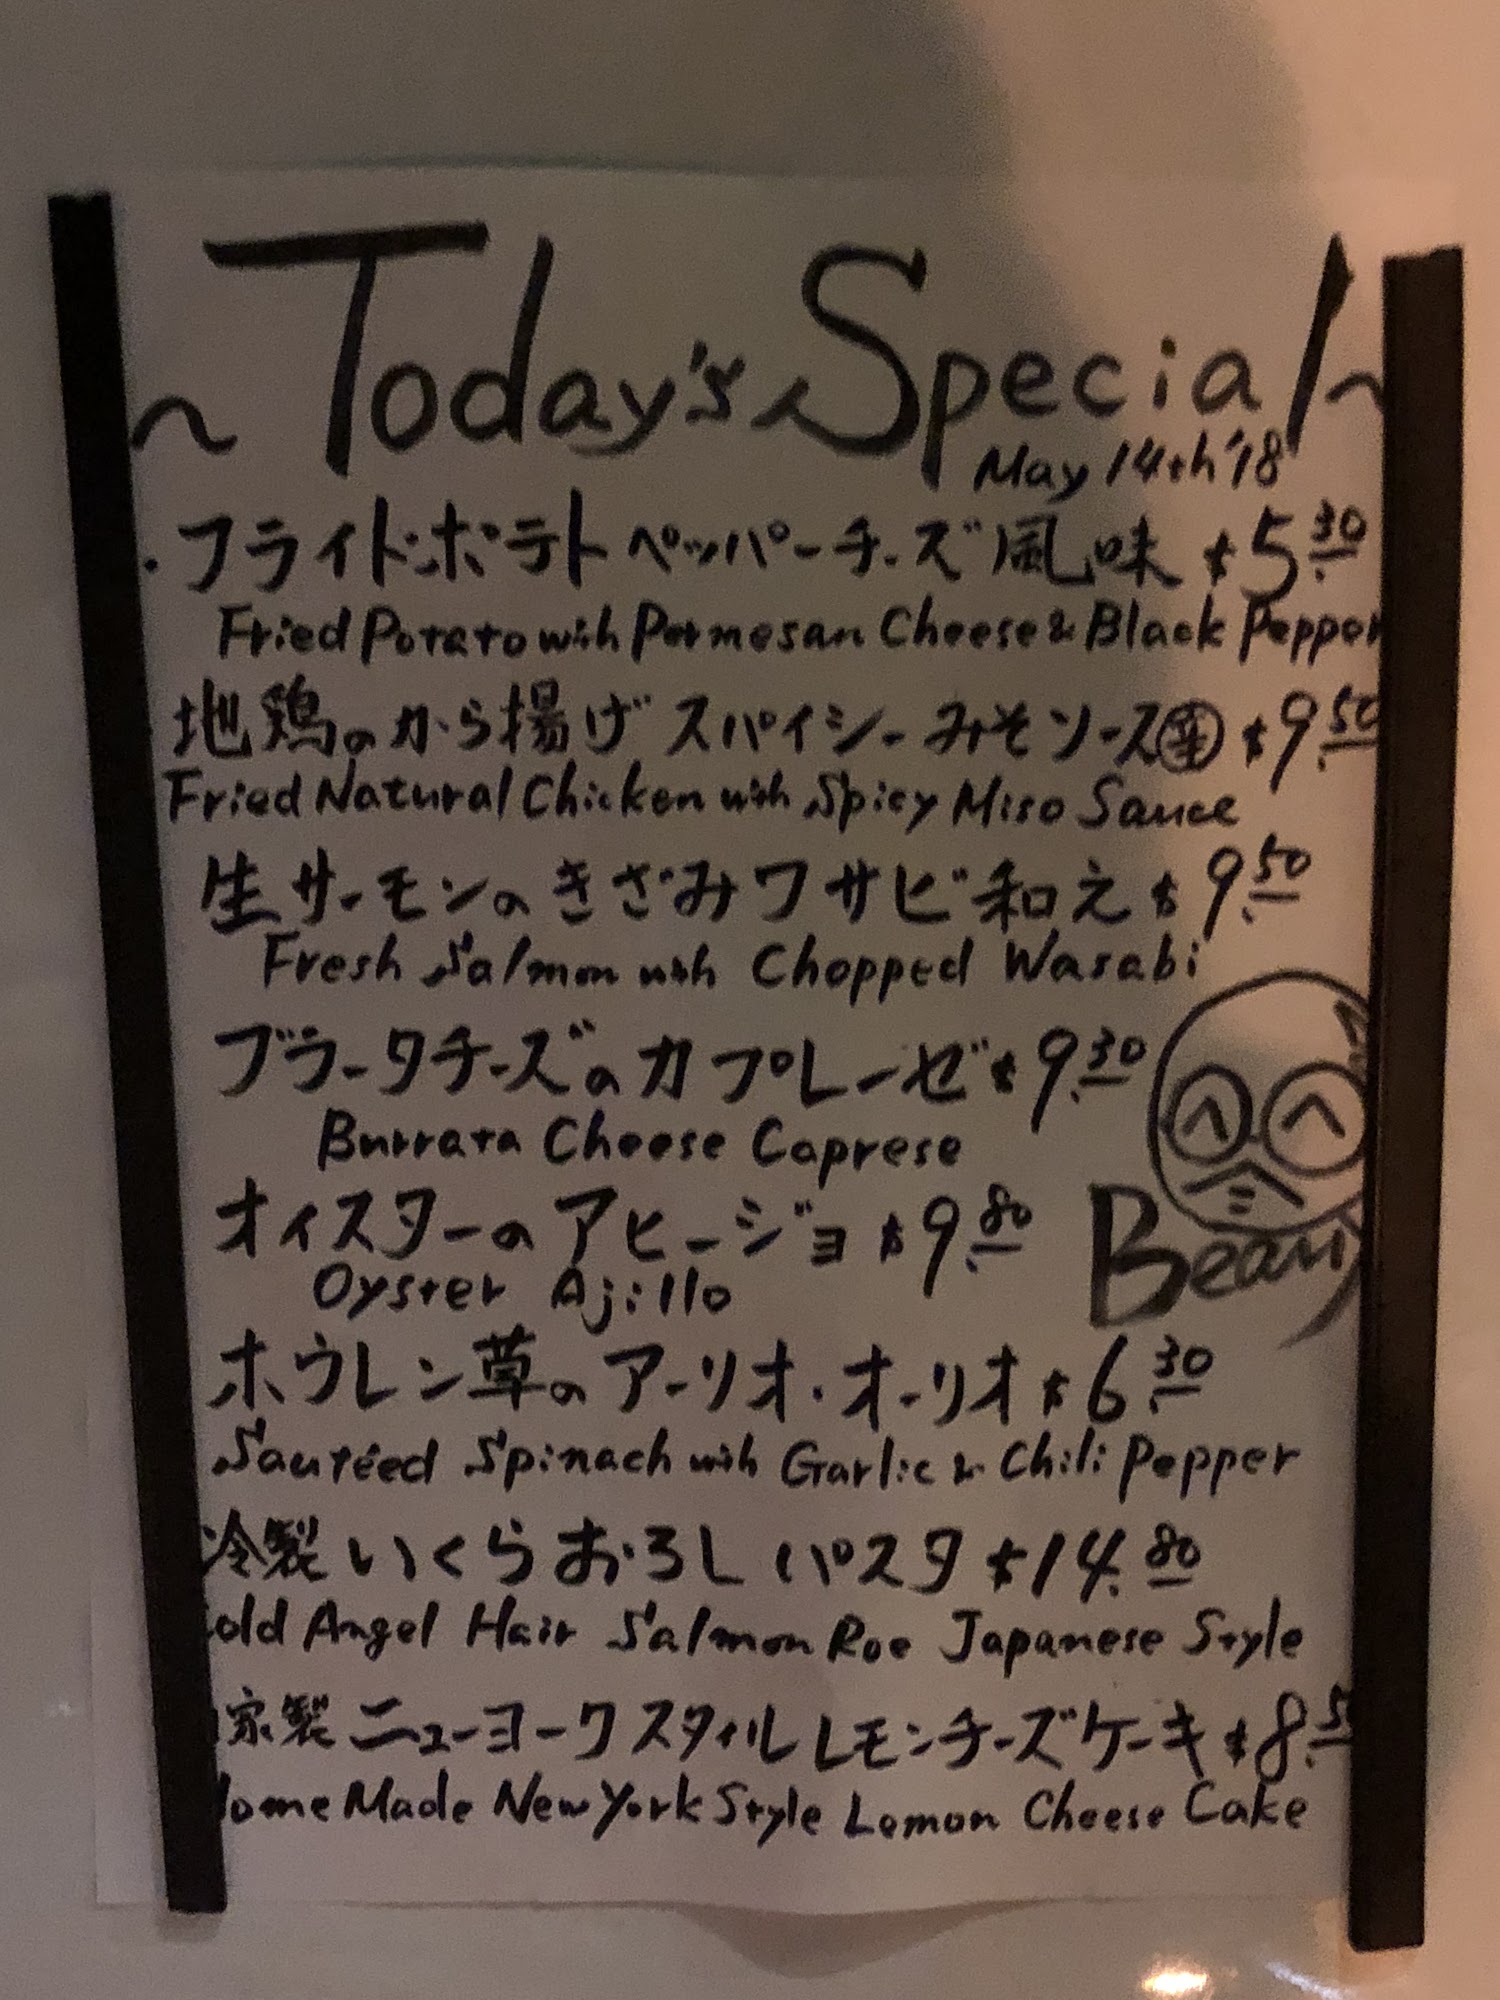 ~Today's Special~
May 14th '18
・フライドポテト ペッパーチーズ風味 $5.30
Fried Potato with Permesan Cheese & Black Pepper
地鶏のから揚げ スパイシーみそソース 辛 $9.50
Fried Natural Chicken with Spicy Miso Sauce
生サーモンのきざみワサビ和え $9.50
Fresh Salmon with Chopped Wasabi
ブラータチーズのカプレーゼ $9.30
Burrata Cheese Caprese
オイスターのアヒージョ $9.80
Oyster Ajillo
Beany
ホウレン草のアーリオ・オーリオ $6.30
Sauteed Spinach with Garlic & Chili Pepper
冷製 いくらおろしパスタ $14.80
Cold Angel Hair Salmon Roe Japanese Style
家製 ニューヨークスタイル レモンチーズケーキ $8.5
Home Made New York Style Lemon Cheese Cake